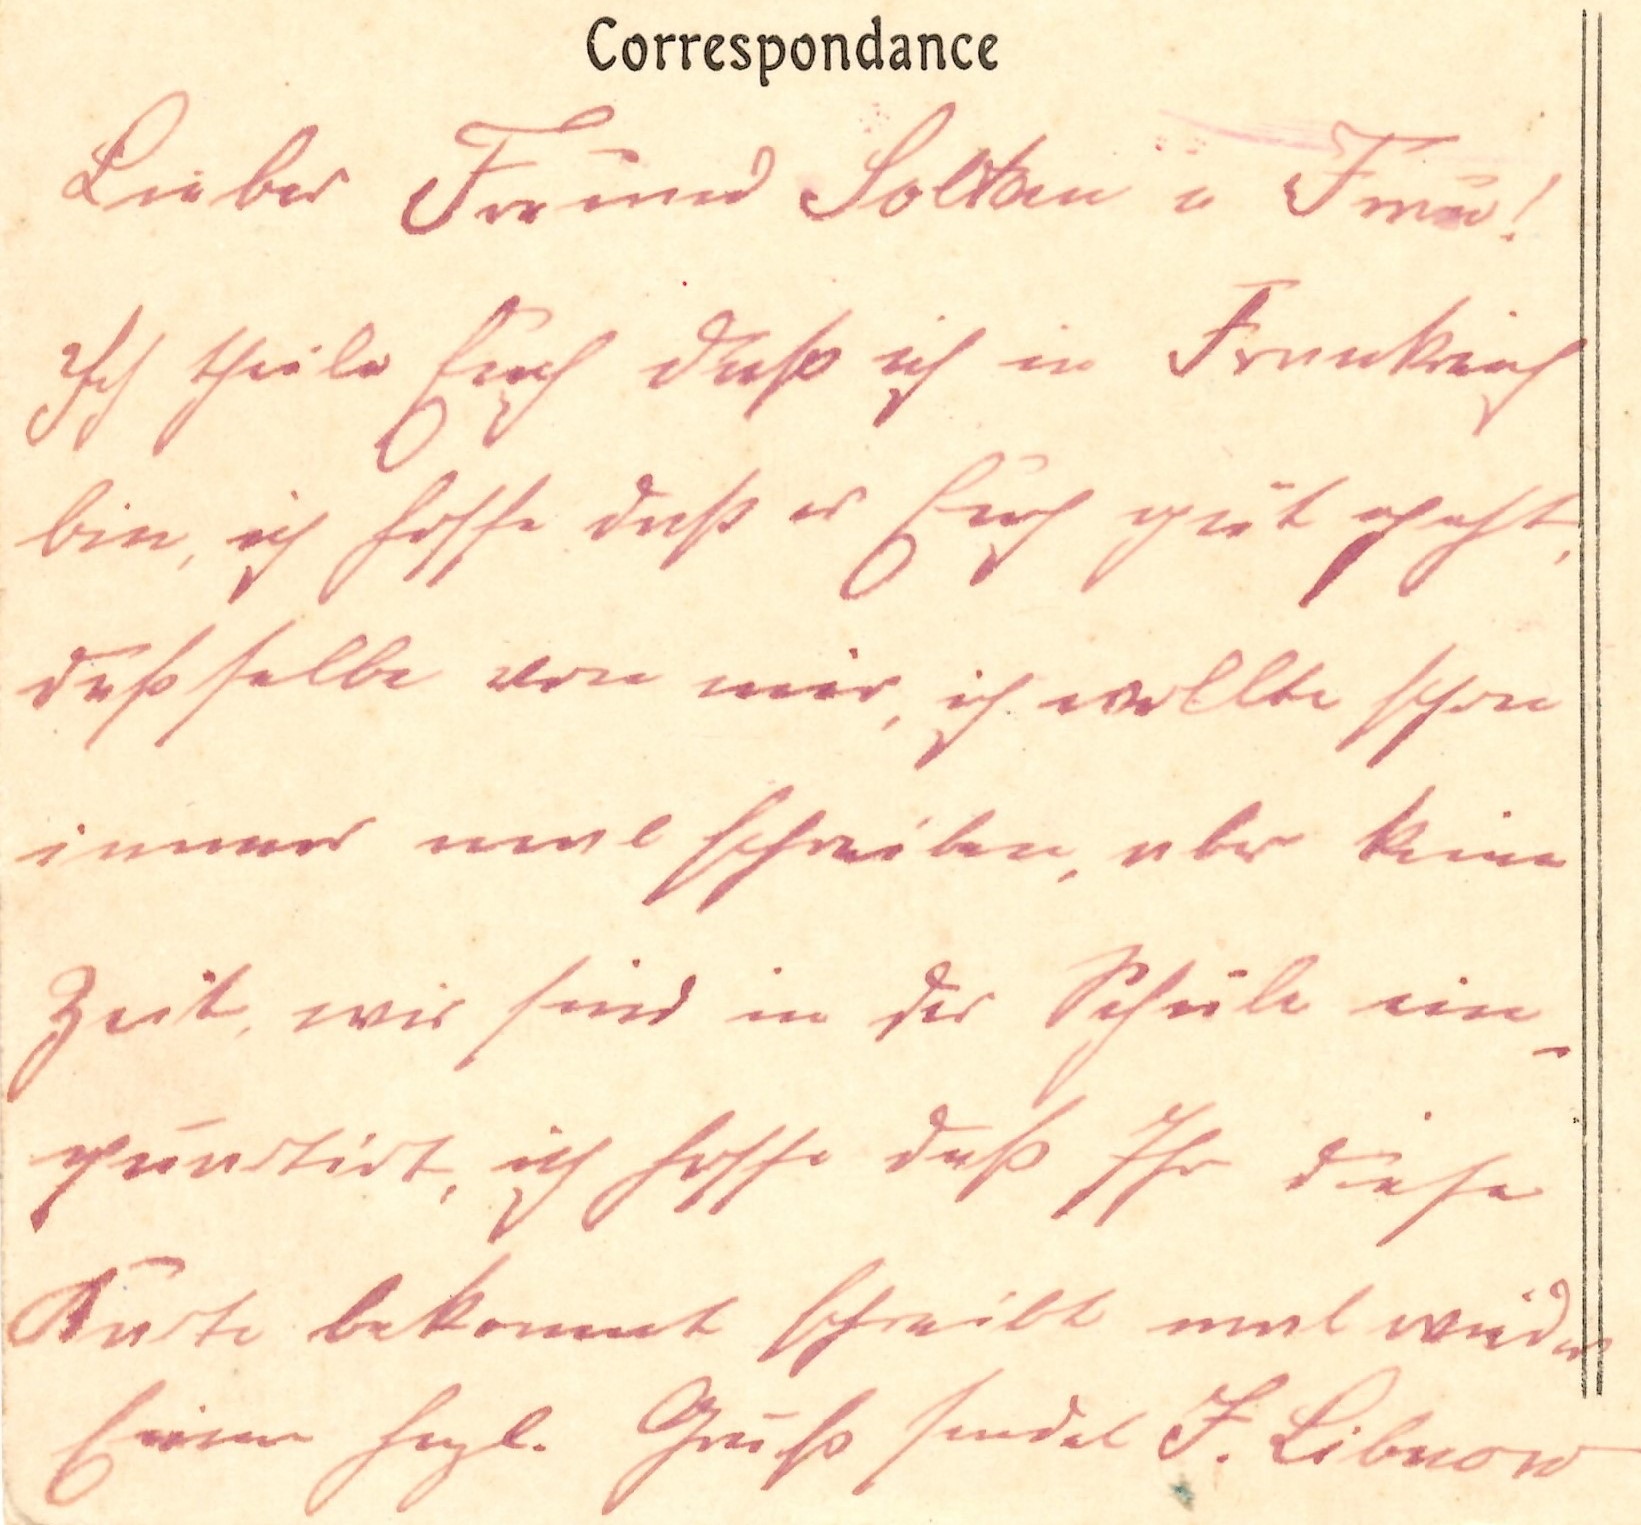 Correspondance
Lieber Freund Soltau u Frau!
Ich theile Euch daß ich in Frankreich
bin, ich hoffe daß es Euch gut geht,
daßselbe von mir, ich wollte schon
immer mal schreiben, aber keine
Zeit, wir sind in der Schule ein-
quartirt, ich hoffe daß Ihr diese
Karte bekommt schreibt mal wieder
Einen hrzl. Gruß sendet F. Libnow